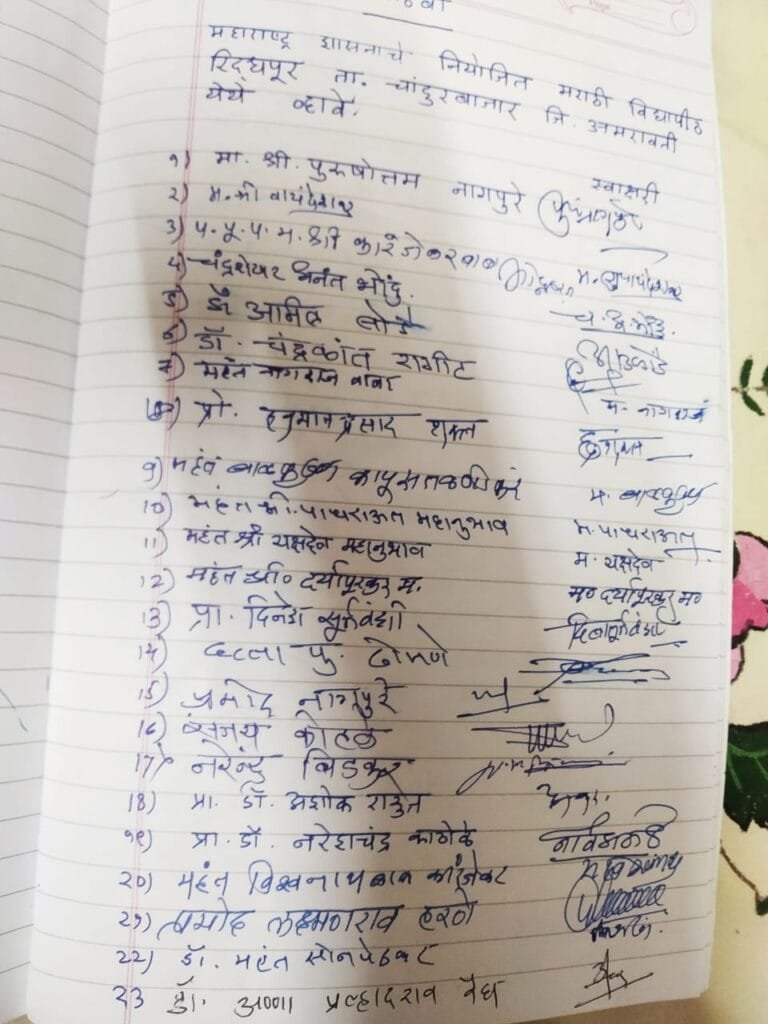 महाराष्ट्र शासनाचे नियोजित मराठी विद्यापीठ
रिद्धपूर ता. चांदुरबाजार जि. अमरावती
येथे व्हावे.
स्वाक्षरी
१) मा. श्री. पुरूषोत्तम नागपुरे
२) म. श्री
३) प. पू. प. म. श्री कारंजेकरबाबा
४) चंद्रशेखर अनंत भोंदु. च. अ. भोंदु.
५) डॉ
६) डॉ. चंद्रकांत रागीट
७) महंत नागराज बाबा म. नागराज
८) प्रो. हनुमानप्रसाद शुक्ल
९) महंत बाळकृष्ण म. बाळकृष्ण
10) महंत श्री. पाचराऊत महानुभाव म. पाचराऊत
11) महंत श्री यक्षदेव महानुभाव म. यक्षदेव
12) महंत श्री० दर्यापूरकर म. म० दर्यापूरकर म०
13) प्रा. दिनेश सूर्यवंशी
14) दत्ता पु. ढोमणे
15) प्रमोद नागपुरे
16) संजय कोल्हे
17) नरेन्द्र बिडकर
18) प्रा. डॉ. अशोक राऊत
१९) प्रा. डॉ. नरेशचंद्र काठोळे
20) महंत विश्वनाथबाबा कारंजेकर
२१) प्रमोद लक्ष्मणराव हरणे
22) डॉ. महंत सोनपेठकर
23 डॉ. अण्णा प्रल्हादराव वैद्य